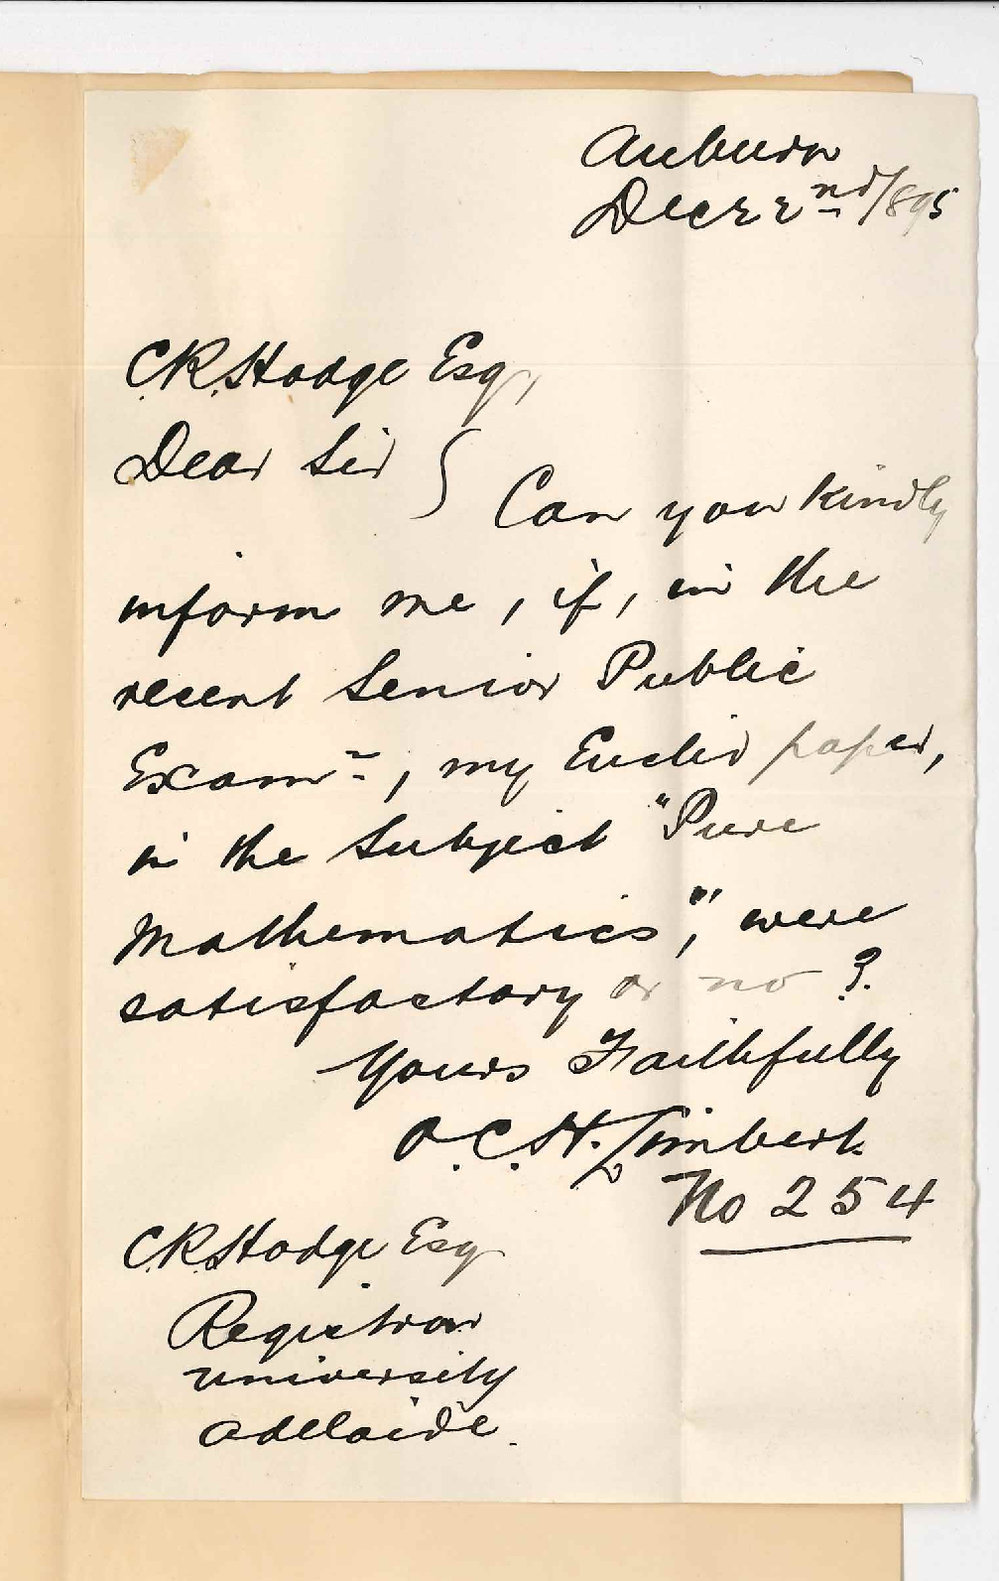 Auburn
Dec 22nd/1895
C.R. Hodge Esq.,
Dear Sir }
Can you kindly
inform me, if, in the
recent Senior Public
Examn, my Euclid paper,
in the Subject "Pure
Mathematics", were
satisfactory or no?
Yours Faithfully
O.C.H. Limbert.
No 254
C.R. Hodge Esq
Registrar
University
Adelaide.